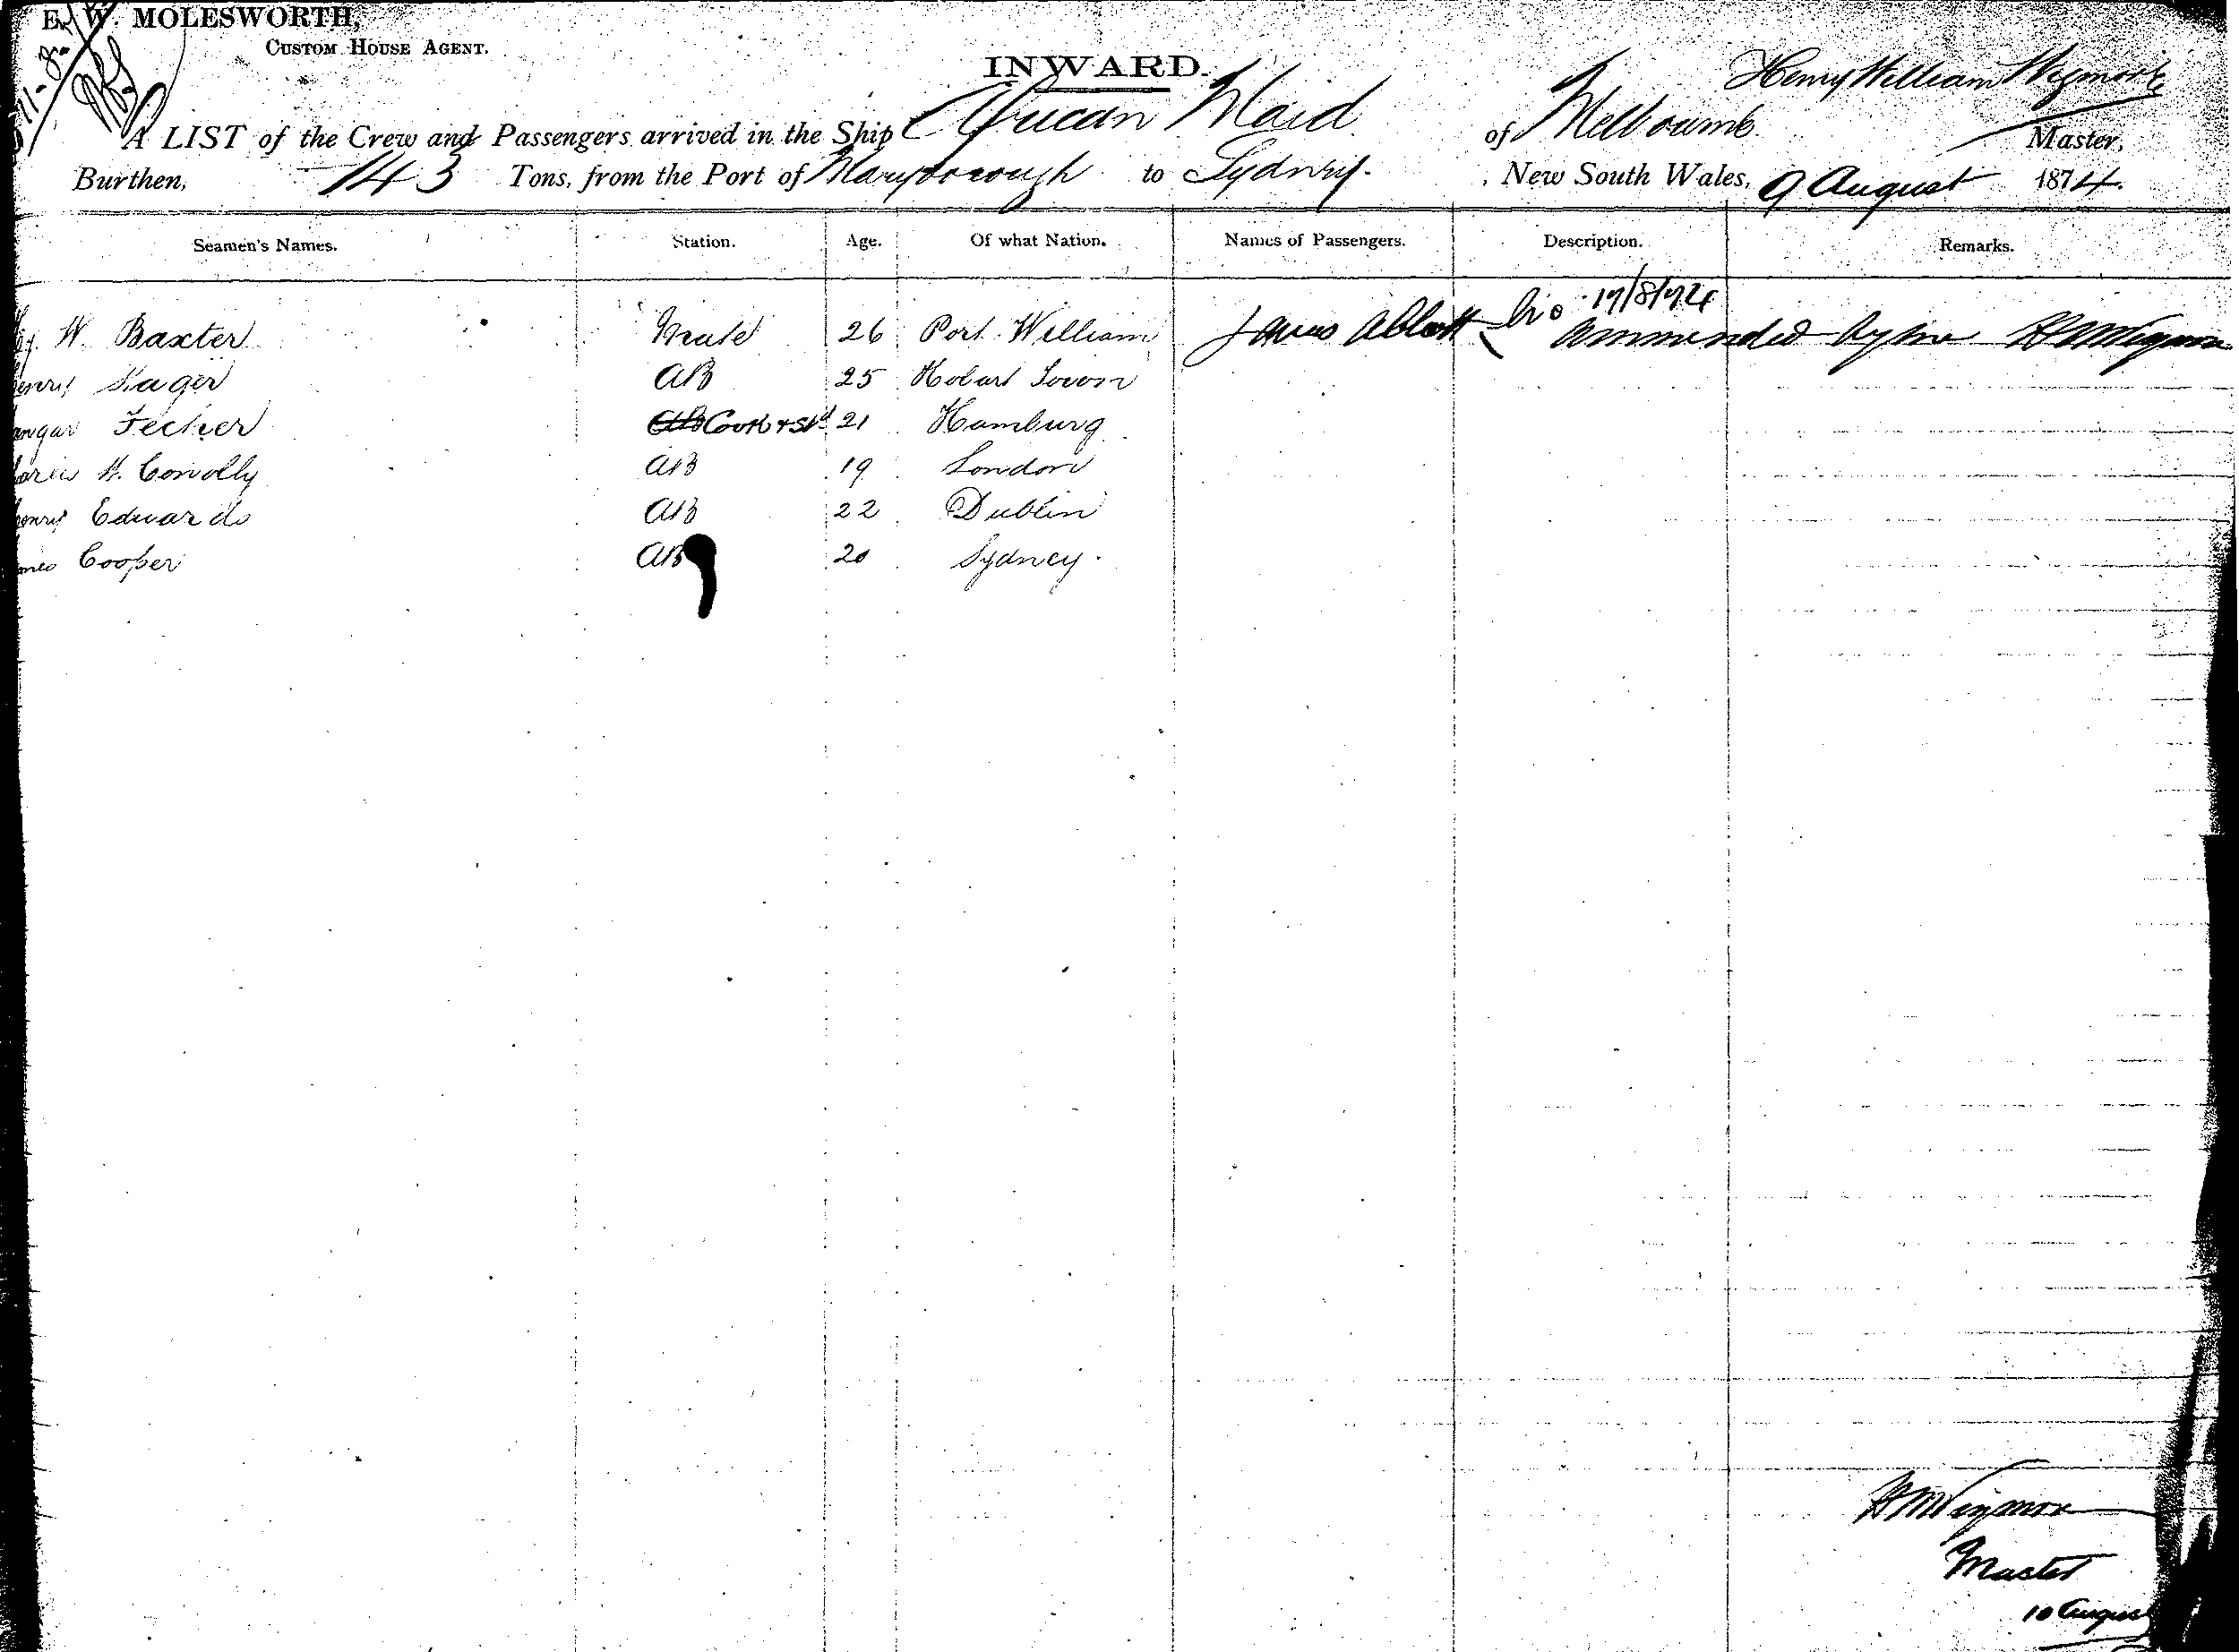 E. W. MOLESWORTH,
CUSTOM HOUSE AGENT.
INWARD.
Henry William Wigmore
A LIST of the Crew and Passengers arrived in the Ship African Maid of Melbourne Master,
Burthen, 143 Tons, from the Port of Maryborough to Sydney. , New South Wales, 9 August 1874.
Seamen's Names. Station. Age. Of what Nation. Names of Passengers. Description. Remarks.
17/8/74
W. Baxter Mate 26 Port William James Abbott ammended by me HWWigmore
Henry Sager AB 25 Hobart Town
Fecher Cook & Std 21 Hamburg
H. Conolly AB 19 London
Henry Edwards AB 22 Dublin
James Cooper AB 20 Sydney.
HWWigmore
Master
10 August